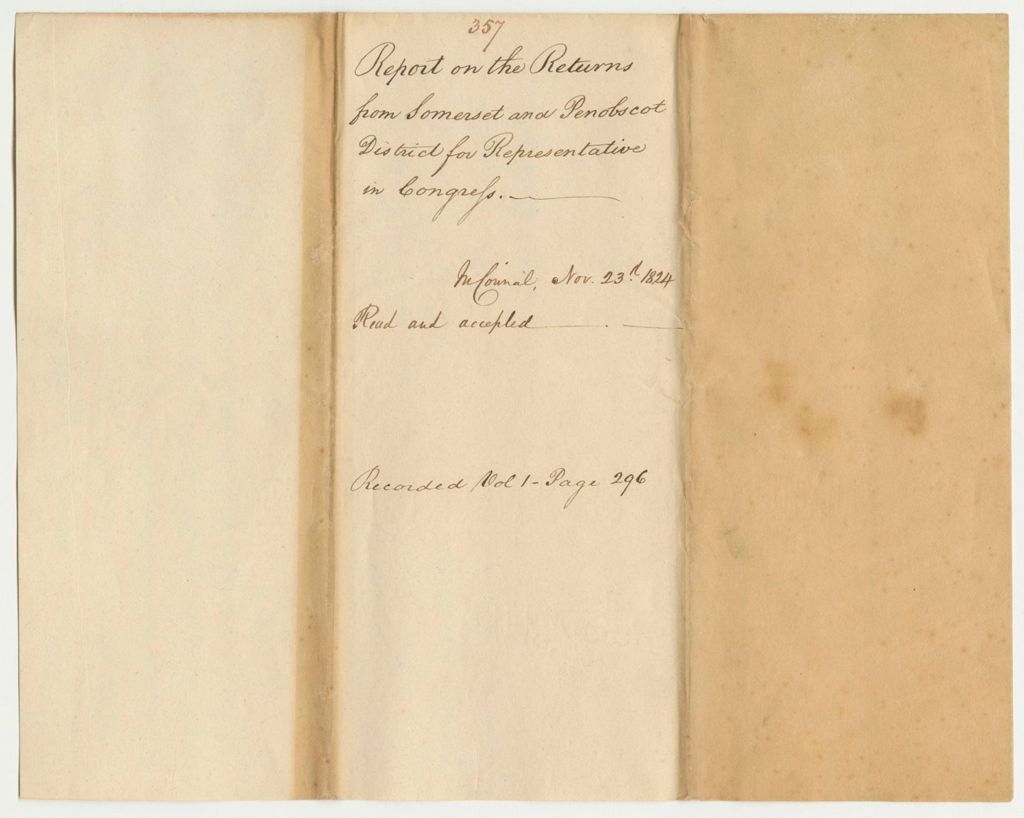 357
Report on the Returns
from Somerset and Penobscot
District for Representative
in Congress.
In Council, Nov. 23d 1824
Read and accepted
Recorded Vol 1 - Page 296